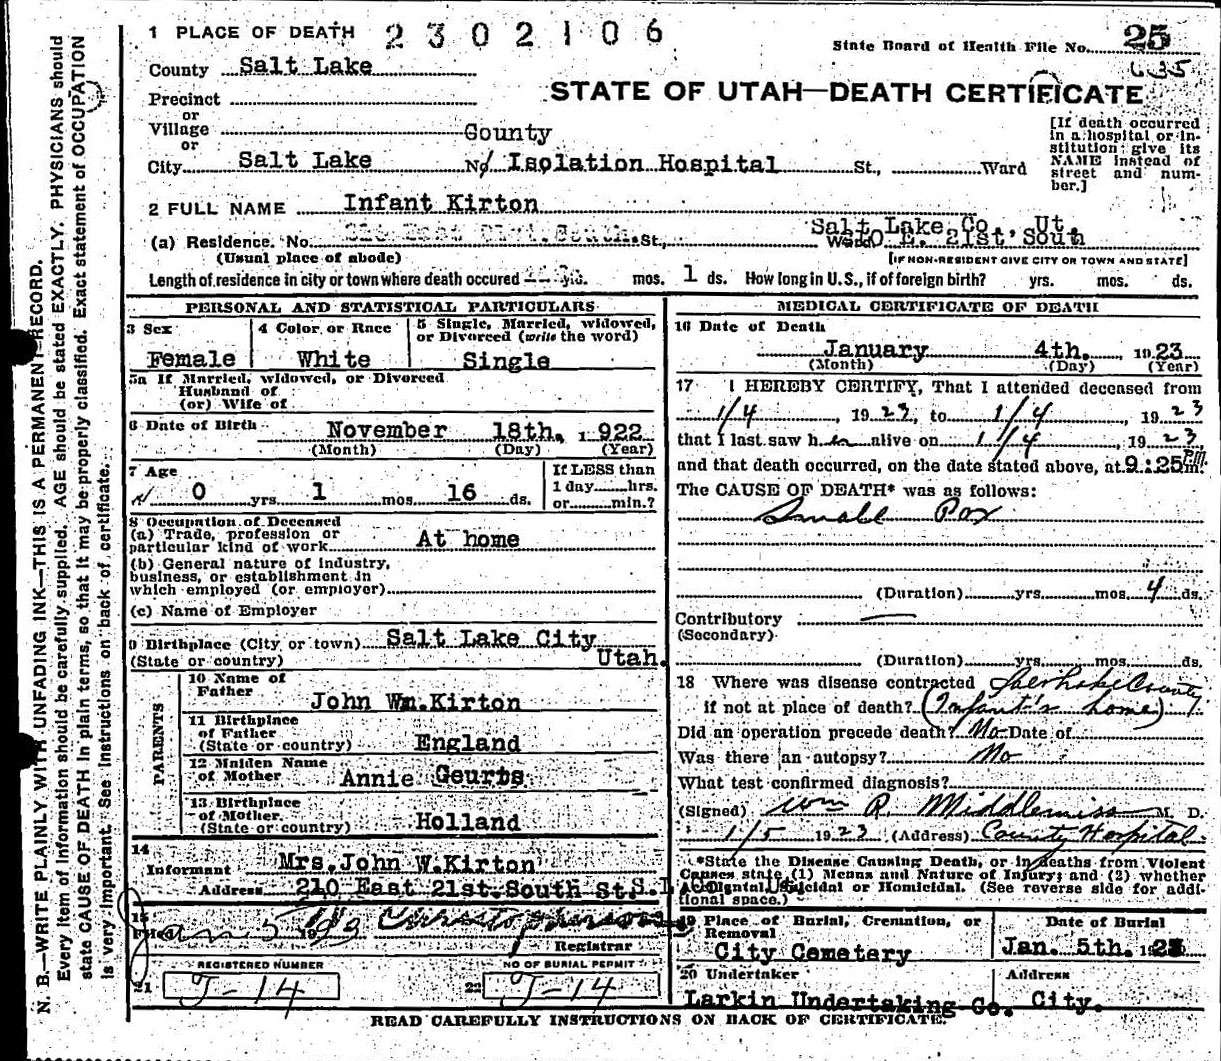 1 PLACE OF DEATH 2302106
State Board of Health File No. 25
635
County Salt Lake
STATE OF UTAH—DEATH CERTIFICATE
Precinct
or
Village
County
or
City Salt Lake No. Isolation Hospital St., Ward
[If death occurred in a hospital or institution give its NAME instead of street and number.]
2 FULL NAME Infant Kirton
Salt Lake Co. Ut.
(a) Residence. No. St., E. 21st South
(Usual place of abode)
[IF NON-RESIDENT GIVE CITY OR TOWN AND STATE]
Length of residence in city or town where death occured yrs. mos. 1 ds. How long in U.S., if of foreign birth? yrs. mos. ds.
PERSONAL AND STATISTICAL PARTICULARS
3 Sex
Female
4 Color or Race
White
5 Single, Married, widowed,
or Divorced (write the word)
Single
5a If Married, widowed, or Divorced
Husband of
(or) Wife of
6 Date of Birth
November 18th. 1922
(Month) (Day) (Year)
7 Age
0 yrs. 1 mos. 16 ds.
If LESS than
1 day hrs.
or min.?
8 Occupation of Deceased
(a) Trade, profession or
particular kind of work At home
(b) General nature of industry,
business, or establishment in
which employed (or employer)
(c) Name of Employer
9 Birthplace (City or town) Salt Lake City
(State or country) Utah.
PARENTS
10 Name of
Father
John Wm. Kirton
11 Birthplace
of Father
(State or country) England
12 Maiden Name
of Mother Annie Geurts
13 Birthplace
of Mother
(State or country) Holland
14
Informant Mrs. John W. Kirton
Address 210 East 21st. South St. S.L.
15
Filed Jan 5 1923
Registrar
REGISTERED NUMBER
21 J-14
NO OF BURIAL PERMIT
22 J-14
MEDICAL CERTIFICATE OF DEATH
16 Date of Death
January 4th. 1923
(Month) (Day) (Year)
17 I HEREBY CERTIFY, That I attended deceased from
1/4, 1923, to 1/4, 1923
that I last saw her alive on 1/4, 1923
and that death occurred, on the date stated above, at 9:25 P.M.
The CAUSE OF DEATH* was as follows:
Small Pox
(Duration) yrs. mos. 4 ds.
Contributory —
(Secondary)
(Duration) yrs. mos. ds.
18 Where was disease contracted Salt Lake County
if not at place of death? (Infant's home)
Did an operation precede death? No Date of
Was there an autopsy? No
What test confirmed diagnosis?
(Signed) Wm R. Middlemiss M. D.
1/5 1923 (Address) County Hospital
*State the Disease Causing Death, or in deaths from Violent
Causes state (1) Means and Nature of Injury; and (2) whether
Accidental, Suicidal or Homicidal. (See reverse side for addi-
tional space.)
19 Place of Burial, Cremation, or
Removal
City Cemetery
Date of Burial
Jan. 5th. 1923
20 Undertaker
Larkin Undertaking Co.
Address
City.
READ CAREFULLY INSTRUCTIONS ON BACK OF CERTIFICATE.
N. B.—WRITE PLAINLY WITH UNFADING INK—THIS IS A PERMANENT RECORD.
Every item of information should be carefully supplied. AGE should be stated EXACTLY. PHYSICIANS should
state CAUSE OF DEATH in plain terms, so that it may be properly classified. Exact statement of OCCUPATION
is very important. See instructions on back of certificate.